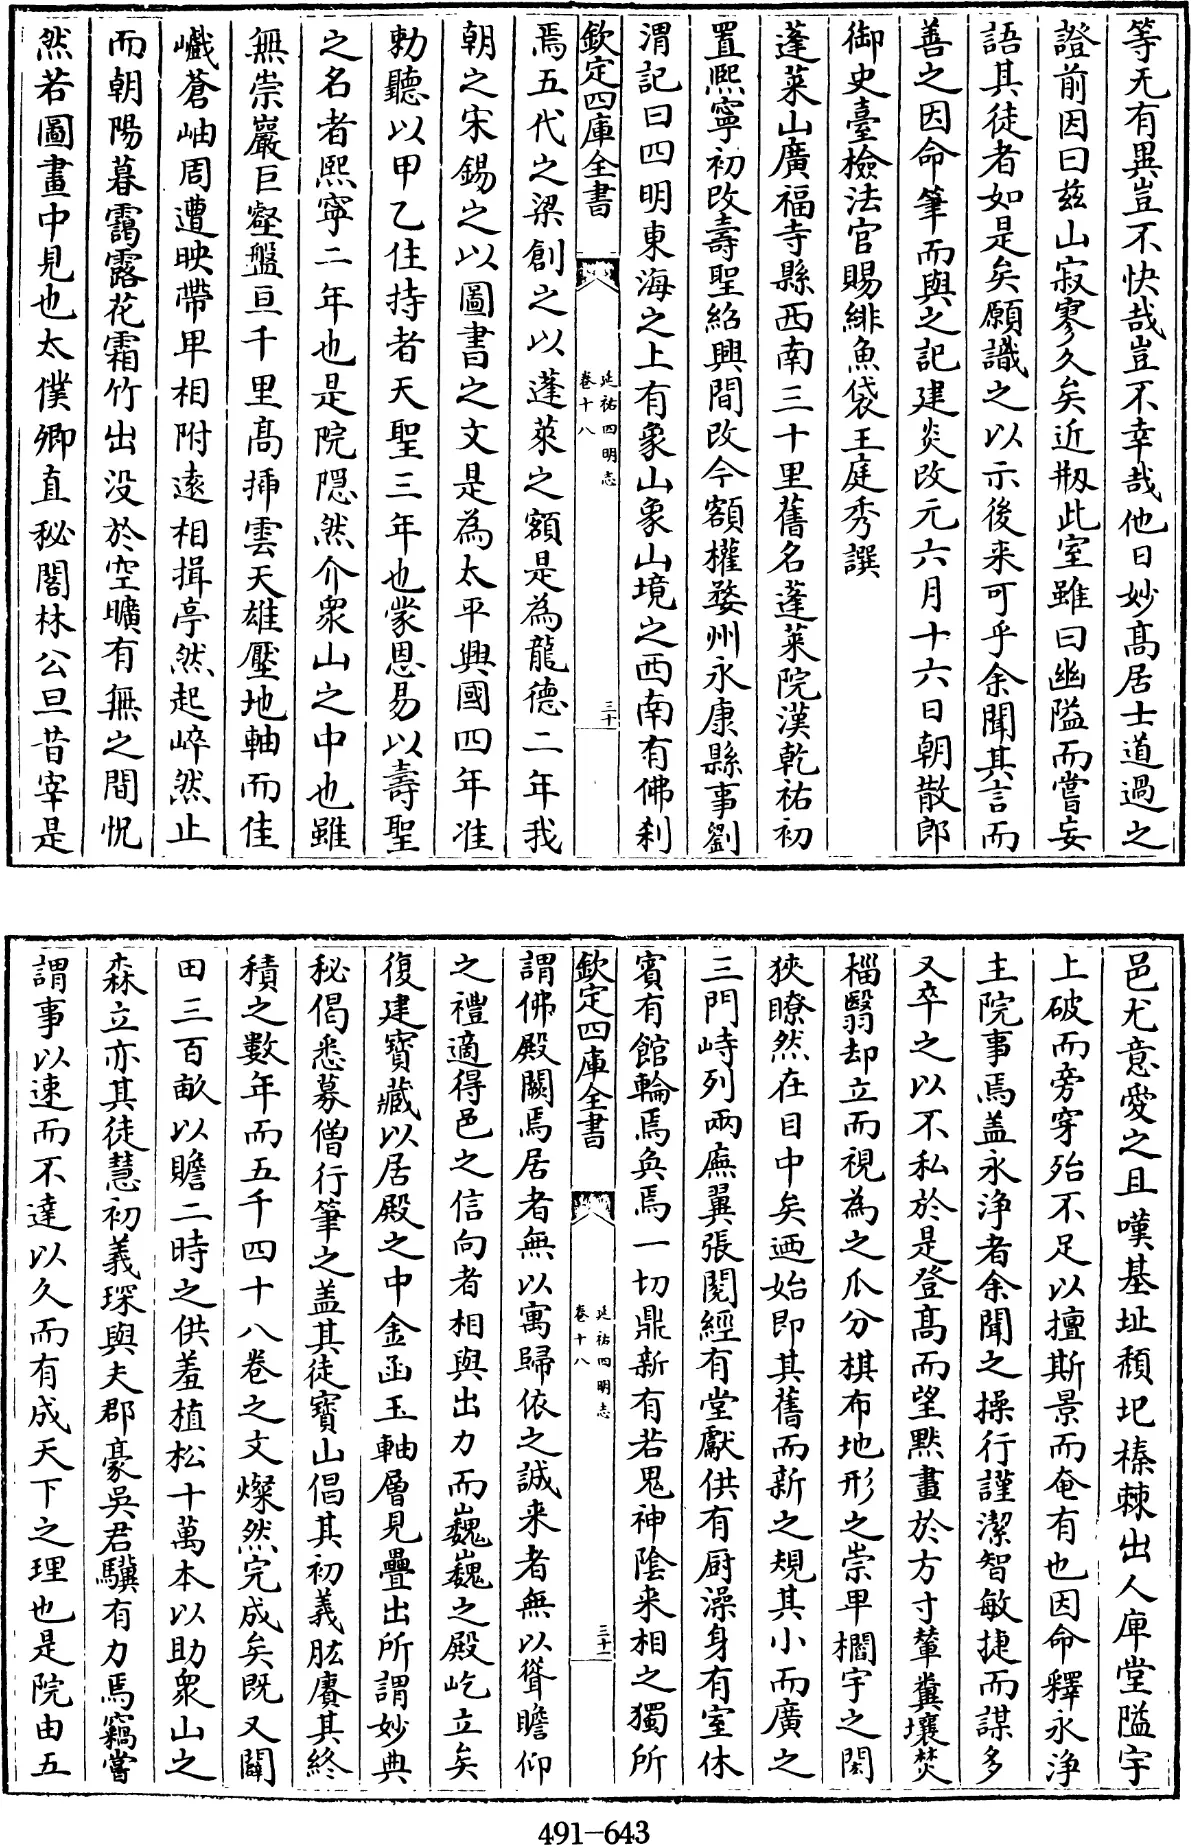 等无有異豈不快哉豈不幸哉他日妙髙居士道過之
證前因曰兹山寂寥久矣近剏此室雖曰幽隘而嘗妄
語其徒者如是矣願識之以示後来可乎余聞其言而
善之因命筆而與之記建炎改元六月十六日朝散郎
御史臺檢法官賜緋魚袋王庭秀譔
蓬萊山廣福寺縣西南三十里舊名蓬萊院漢乾祐初
置熙寧初改壽聖紹興間改今額權婺州永康縣事劉
渭記曰四明東海之上有象山象山境之西南有佛刹
欽定四庫全書
延祐四明志
卷十八
三十
焉五代之梁創之以蓬萊之額是為龍德二年我
朝之宋錫之以圖書之文是為太平興國四年准
勅聽以甲乙住持者天聖三年也蒙恩易以壽聖
之名者熙寧二年也是院隠然介衆山之中也雖
無崇巖巨壑盤亘千里髙揷雲天雄壓地軸而佳
巘蒼岫周遭映帶早相附逺相揖亭然起崪然止
而朝陽暮靄露花霜竹出没於空曠有無之間怳
然若圖畫中見也太僕卿直秘閣林公旦昔宰是
邑尤意愛之且嘆基址頹圯榛棘出人庫堂隘宇
上破而旁穿殆不足以擅斯景而奄有也因命釋永浄
主院事焉盖永浄者余聞之操行謹潔智敏捷而謀多
又卒之以不私於是登髙而望㸃畫於方寸輦糞壤焚
椔翳却立而視為之爪分棋布地形之崇卑櫩宇之閎
狹瞭然在目中矣迺始即其舊而新之規其小而廣之
三門峙列兩廡翼張閲經有堂獻供有厨澡身有室休
賓有館輪焉奐焉一切鼎新有若鬼神隂来相之獨所
欽定四庫全書
延祐四明志
卷十八
三十一
謂佛殿闕焉居者無以寓歸依之誠来者無以聳瞻仰
之禮適得邑之信向者相與出力而巍巍之殿屹立矣
復建寳藏以居殿之中金函玉軸層見疊出所謂妙典
秘偈悉募僧行筆之盖其徒寳山倡其初義肱賡其終
積之數年而五千四十八卷之文燦然完成矣既又闢
田三百畝以贍二時之供羞植松十萬本以助衆山之
森立亦其徒慧初義琛與夫郡豪吳君驥有力焉竊嘗
謂事以速而不達以久而有成天下之理也是院由五
491-643